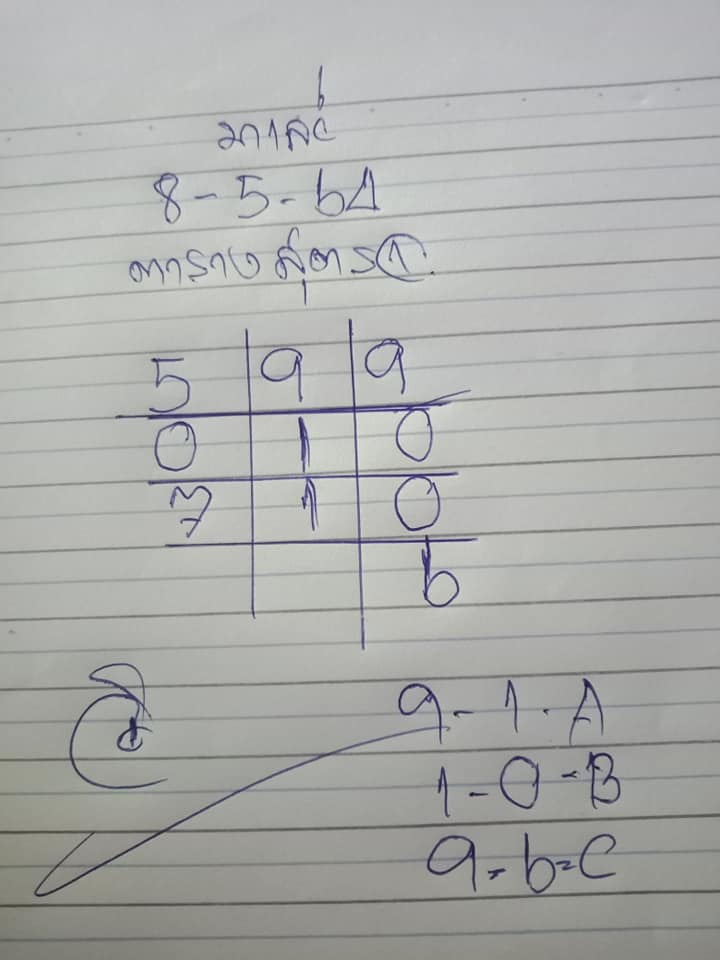 8-5-64
ตารางสูตร 1
5 9 9
0 1 0
7 1 0
6
9-1-A
1-0-B
9-6=C